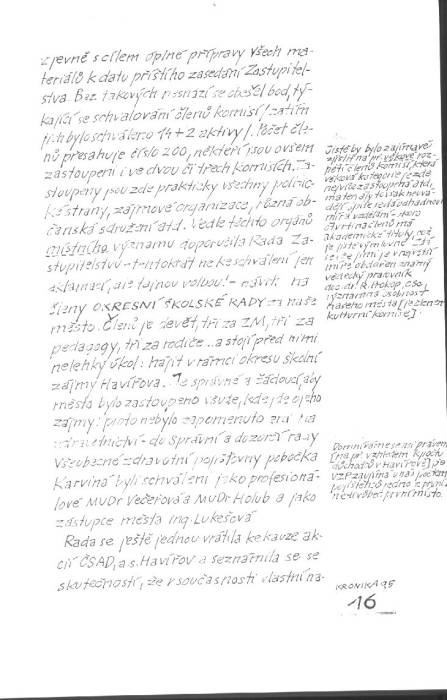 zjevně s cílem úplné přípravy všech ma-
teriálů k datu příštího zasedání Zastupitel-
stva. Bez takových nesnází se obešel bod, tý-
kající se schvalování členů komisí / zatím
jich bylo schváleno 14 + 2 aktivy /. Počet čle-
nů přesahuje číslo 200, někteří jsou ovšem
zastoupeni i ve dvou či třech komisích. Za-
stoupeny jsou zde prakticky všechny politic-
ké strany, zájmové organizace, různá ob-
čanská sdružení atd. Vedle těchto orgánů
místního významu doporučila Rada Za-
stupitelstvu - tentokrát ne ke schválení jen
aklamací, ale tajnou volbou! - návrh na
členy OKRESNÍ ŠKOLSKÉ RADY za naše
město. Členů je devět, tři za ZM, tři za
pedagogy, tři za rodiče.. a stojí před nimi
nelehký úkol: hájit v rámci okresu školní
zájmy Havířova. Je správné a žádoucí, aby
město bylo zastoupeno všude, kde jde o jeho
zájmy: proto nebylo zapomenuto ani na
zdravotnictví - do správní a dozorčí rady
Všeobecné zdravotní pojišťovny pobočka
Karviná byli schváleni jako profesioná-
lové MUDr Večeřová a MUDr Holub a jako
zástupce města ing. Lukešová
Rada se ještě jednou vrátila ke kauze ak-
cií ČSAD, a.s. Havířov a seznámila se se
skutečností, že v současnosti vlastní na-
Jistě by bylo zajímavé
zjistit na př. věkové roz-
pětí členů komisí, která
věková kategorie je zde
nejvíce zastoupena atd.,
materiály to však neuvá-
dějí
čtvrtina členů má
akademické tituly, což
je jistě výmluvné
vědecký pracovník
doc. dr. R. Prokop, CSc.
významná osobnost
našeho města [je členem
kulturní komise].
Domníváme se asi právem
[na př. vzhledem k počtu
důchodců v Havířově], že
VZP zaujímá u nás počtem
pojištěnců jedno z prvních
ne-li vůbec první místo.
KRONIKA 95
16